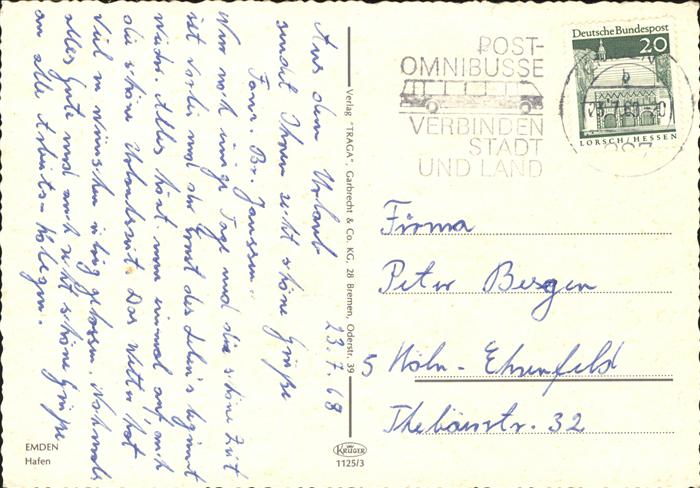 Aus dem Urlaub
23.7.68
sendet Ihnen recht schöne Grüße
Fam. Br. Janssen.
Nur noch einige Tage und die schöne Zeit
ist vorbei und der Ernst des Lebens beginnt
wieder. Alles hört nun einmal auf, auch
die schöne Urlaubszeit. Das Wetter hat
viel zu wünschen übrig gelassen. Nochmals
alles Gute und auch recht schöne Grüße
an alle Arbeits-Kollegen.
EMDEN
Hafen
Verlag "TRAGA" Garbrecht & Co. KG, 28 Bremen, Oderstr. 39
KRÜGER
1125/3
POST-
OMNIBUSSE
VERBINDEN
STADT
UND LAND
Deutsche Bundespost
20
LORSCH/HESSEN
Firma
Peter Bergen
5 Köln-Ehrenfeld
Thebäerstr. 32